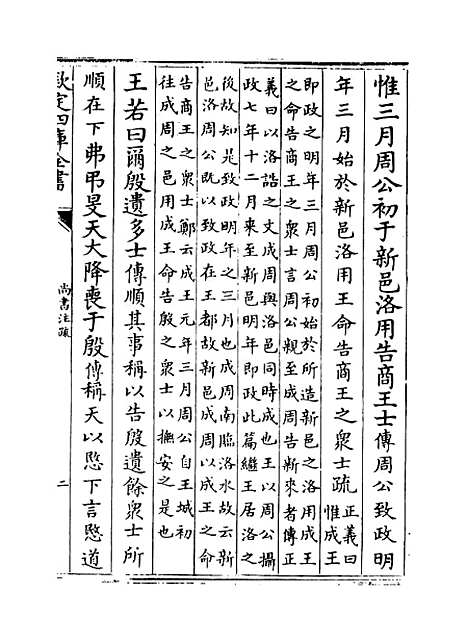 惟三月周公初于新邑洛用告商王士傳周公致政明
年三月始於新邑洛用王命告商王之衆士疏正義曰惟成王
即政之明年三月周公初始於所造新邑之洛用成王
之命告商王之衆士言周公親至成周告新來者傳正
義曰以洛誥之文成周與洛邑同時成也王以周公攝
政七年十二月來至新邑明年即政此篇繼王居洛之
後故知是致政明年之三月也成周南臨洛水故云新
邑洛周公既以致政在王都故新邑成周以成王之命
告商王之衆士鄭云成王元年三月周公自王城初
往成周之邑用成王命告殷之衆士以撫安之是也
王若曰爾殷遺多士傳順其事稱以告殷遺餘衆士所
順在下弗弔旻天大降喪于殷傳稱天以愍下言愍道
欽定四庫全書
尚書注疏
二